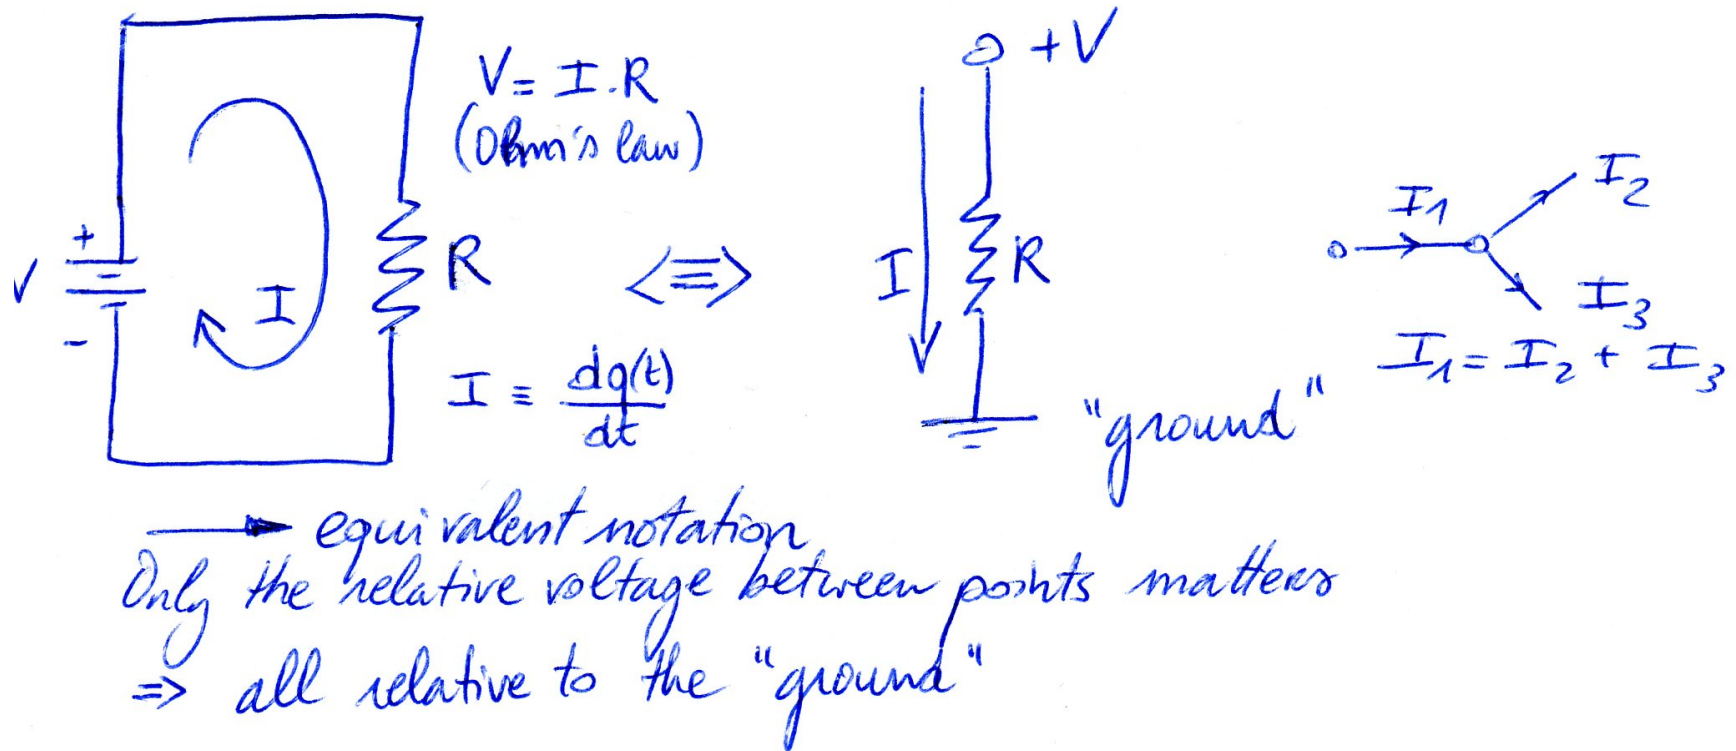 V = I.R
(Ohm's law)
+
V
-
I
R
I ≡ dq(t)/dt
<≡>
+V
I
R
"ground"
I1
I2
I3
I1 = I2 + I3
equivalent notation
Only the relative voltage between points matters
=> all relative to the "ground"